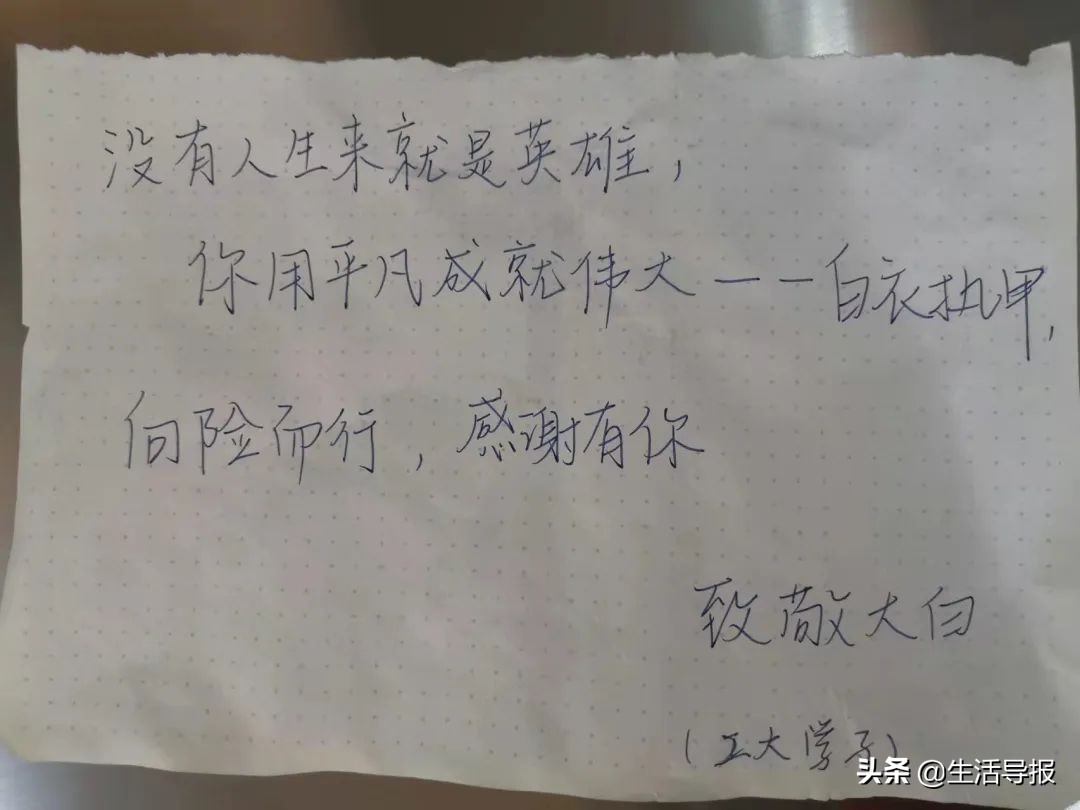 没有人生来就是英雄，
你用平凡成就伟大——白衣执甲，
向险而行，感谢有你
致敬大白
（工大学子）
头条 @生活导报